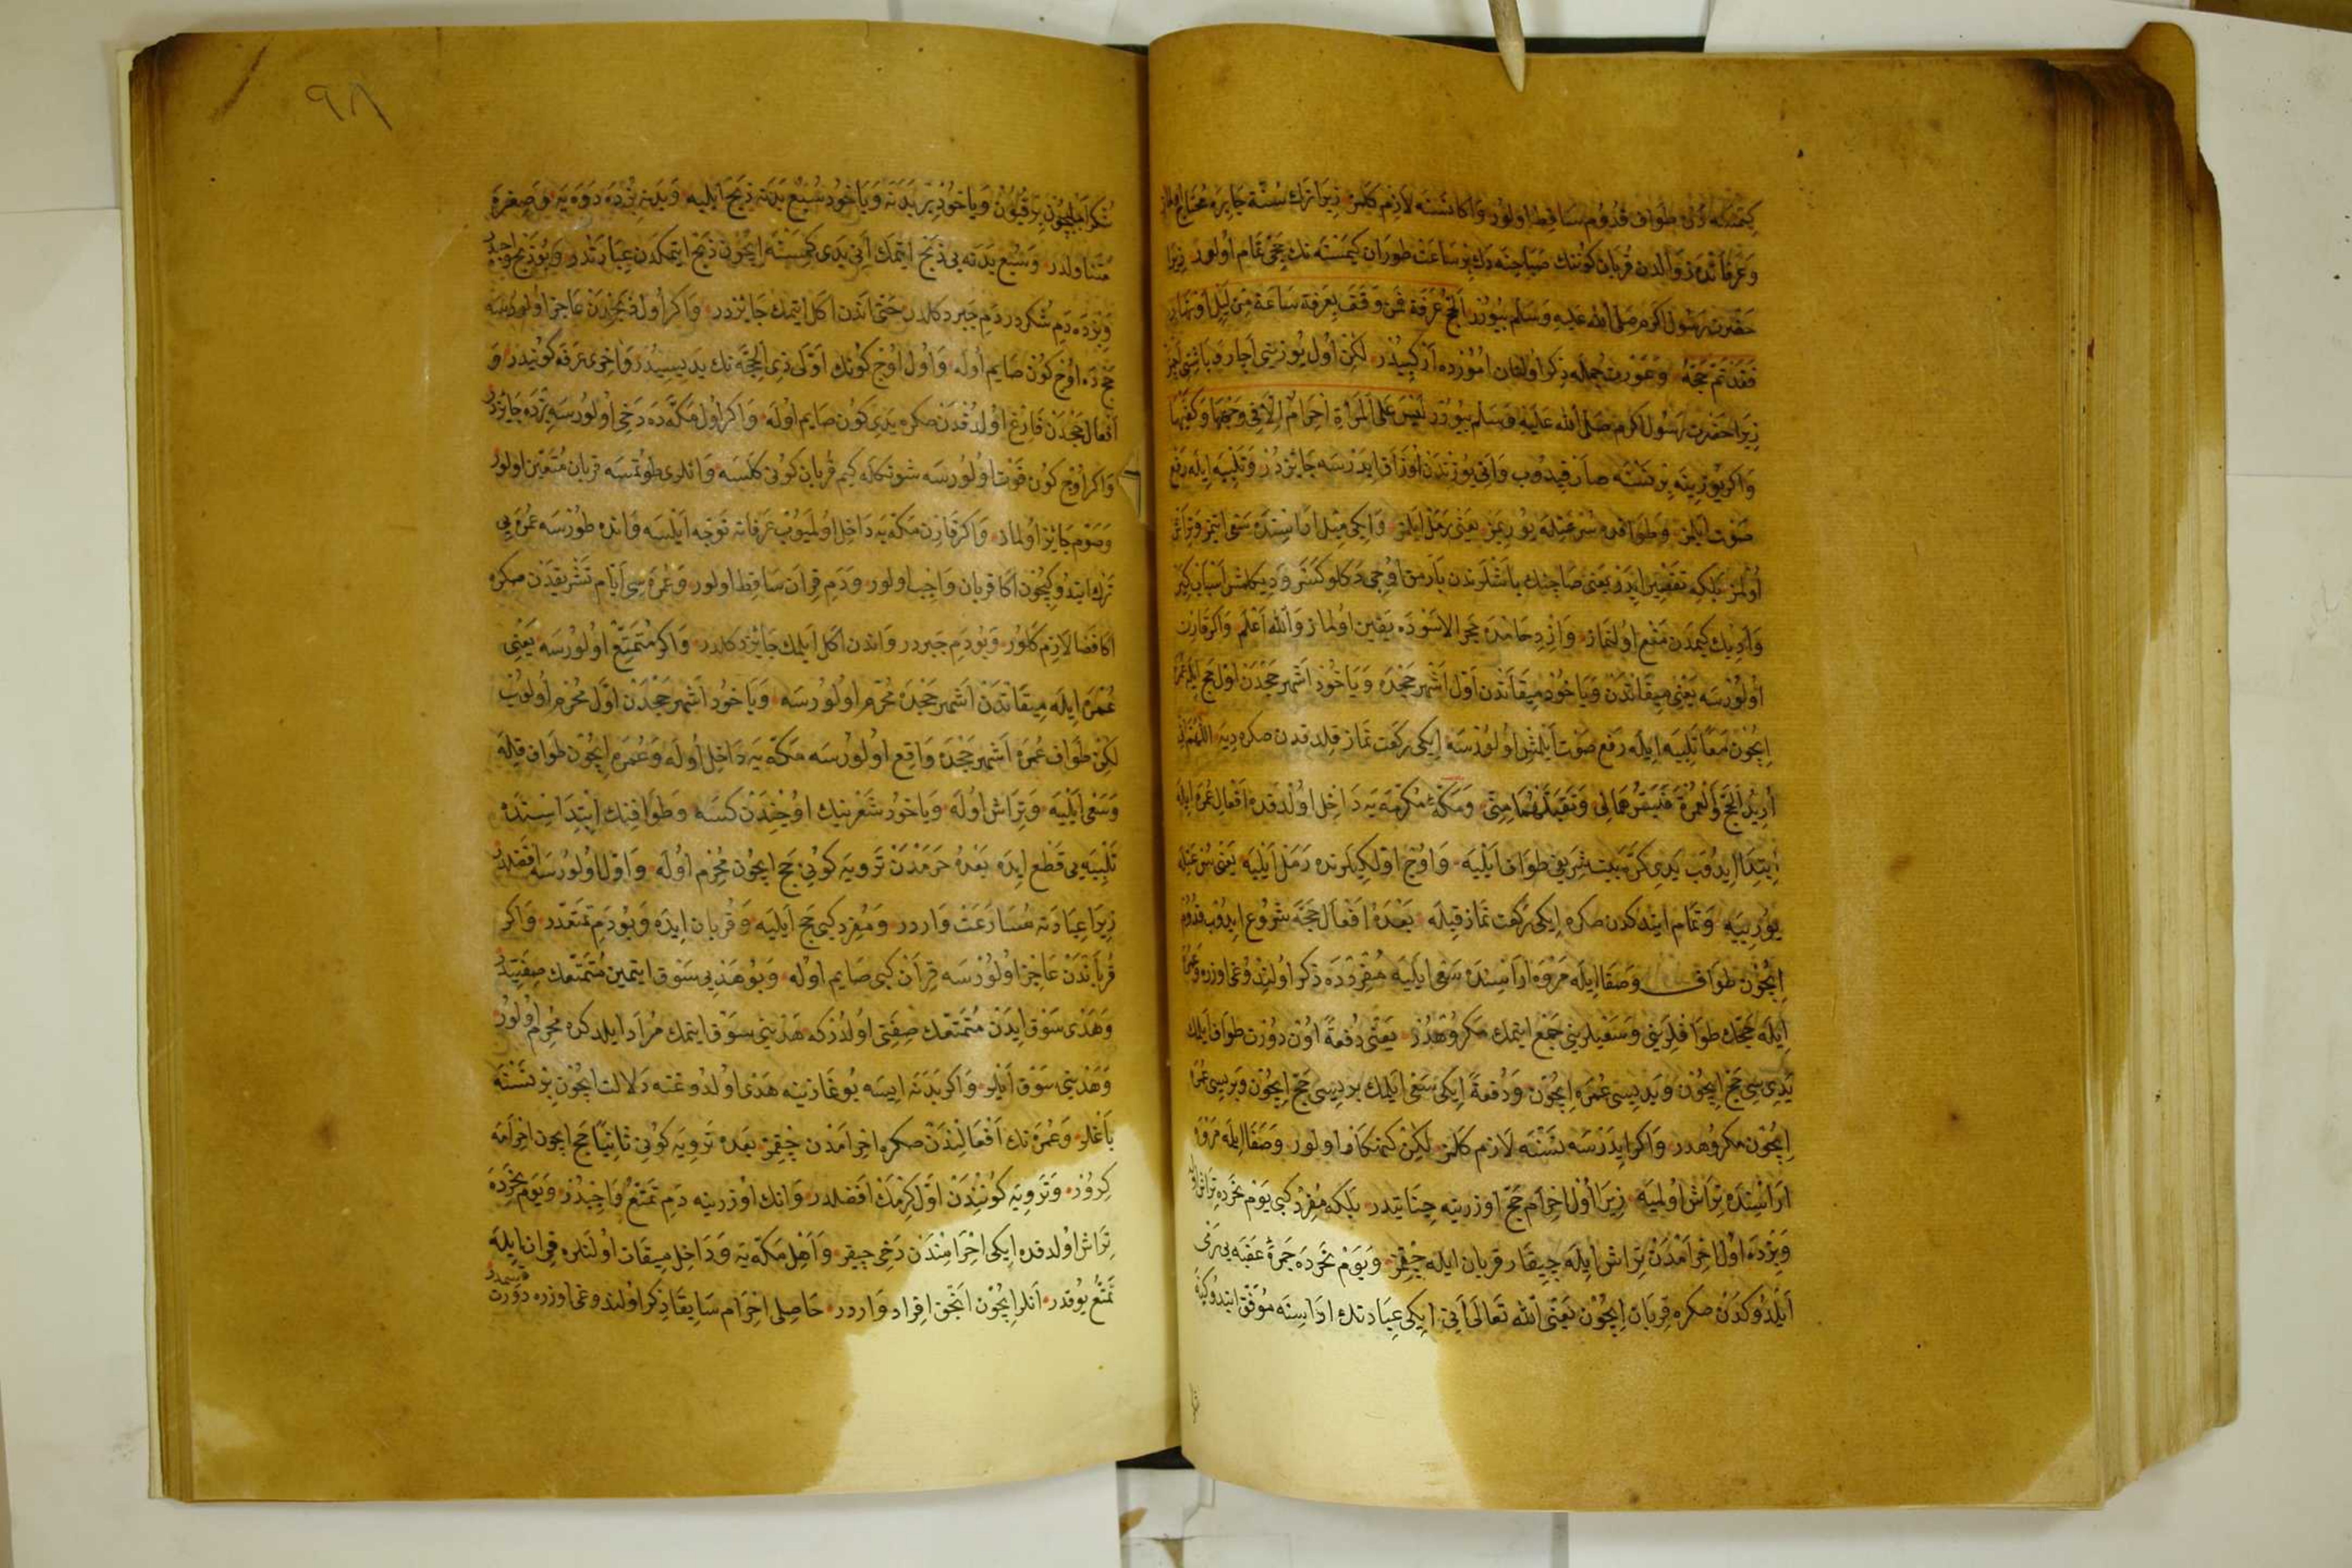 كمسنه دن طواف قدوم ساقط اولور واكا نسنه لازم كلمز زيرا ترك سنته جابره محتاج اولماز
وعرفاتده زوالدن قربان كوننك صباحنه دك بر ساعت طوران كيمسنه نك حجى تمام اولور زيرا
حضرت رسول اكرم صلى الله عليه وسلم بيورر الحج عرفة فمن وقف بعرفة ساعة من ليل او نهار
فقد تم حجه وعورت جمله ذكر اولنان امورده ار كبيدر لكن اول يوزينى اچار وباشنى اچمز
زيرا حضرت رسول اكرم صلى الله عليه وسلم بيورر ليس على المرأة احرام الا فى وجهها وكفيها
واكر يوزينه بر نسنه صارقيدوب وانى يوزندن اوزاق ايدرسه جايزدر وتلبيه ايله رفع
صوت ايلمز وطوافده سرعتله يوريمز يعنى رمل ايلمز وايكى ميل اراسنده سعى ايتمز وتراش
اولمز بلكه تقصير ايدر يعنى صاچنك باشلرندن پارمق اوجى دكلو كسر وديكلمش اسباب كير
وادينك كيمدن منع اولنماز وازدحامده حجر الاسوده يقين اولماز والله اعلم واكر قارن
اولورسه يعنى ميقاتدن وياخود ميقاتدن اول اشهر حجده وياخود اشهر حجدن اول حج ايله عمره
ايچون معا تلبيه ايله رفع صوت ايلمش اولورسه ايكى ركعت نماز قلدقدن صكره ديه اللهم انى
اريد الحج والعمرة فيسرهما لى وتقبلهما منى ومكۀ مكرمه يه داخل اولدقده افعال عمره ايله
ابتدا ايدوب يدى كره بيت شريفى طواف ايليه واوچ اولكيلرنده رمل ايليه يعنى سرعتله
يوريه وتمام ايتدكدن صكره ايكى ركعت نماز قيله بعده افعال حجه شروع ايدوب قدوم
ايچون طواف وصفا ايله مروه اراسنده سعى ايليه مفردده ذكر اولندوغى اوزره وعمره
ايله حجك طوافلرينى وسعيلرينى جمع ايتمك مكروهدر يعنى دفعة اون دورت طواف ايلمك
يديسى حج ايچون ويديسى عمره ايچون ودفعة ايكى سعى ايلمك بريسى حج ايچون وبريسى عمره
ايچون مكروهدر واكر ايدرسه نسنه لازم كلمز لكن كنهكار اولور وصفا ايله مروه
اراسنده تراش اولميه زيرا اول احرام حج اوزرينه جنايتدر بلكه مفرد كبى يوم نحرده تراش اوله
وبزده اول احرامدن تراش ايله چيقار قربان ايله چقمز ويوم نحرده جمرۀ عقبه يى رمى
ايلدوكدن صكره قربان ايچون يعنى الله تعالى انى ايكى عبادتك اداسنه موفق ايتدوكيچون
٩٨
شكرا ايچون بر قيون وياخود بر بدنه وياخود سبع بدنه ذبح ايليه وبدنه بزده دوه يه وصغره
متناولدر وسبع بدنه يى ذبح ايتمك انى يدى كمسنه ايچون ذبح ايتمكدن عبارتدر وبو ذبح واجبدر
وبزده دم شكردر دم جبر دكلدر حتى اندن اكل ايتمك جايزدر واكر اول ذبحدن عاجز اولورسه
حجده اوچ كون صايم اوله واول اوچ كونك اولى ذى الحجه نك يديسيدر واخرى عرفه كونيدر و
افعال حجدن فارغ اولدقدن صكره يدى كون صايم اوله واكر اول مكه ده دخى اولورسه بزده جايزدر
واكر اوچ كون فوت اولورسه شونكله كيم قربان كونى كلسه وانلرى طوتمسه قربان متعين اولور
وصوم جايز اولماز واكر قارن مكه يه داخل اولميوب عرفاته توجه ايلسه وانده طورسه عمره يى
ترك ايتدوكيچون اكا قربان واجب اولور ودم قران ساقط اولور وعمره سى ايام تشريقدن صكره
اكا قضا لازم كلور وبو دم جبردر واندن اكل ايلمك جائز دكلدر واكر متمتع اولورسه يعنى
عمره ايله ميقاتدن اشهر حجده محرم اولورسه وياخود اشهر حجدن اول محرم اولوب
لكن طواف عمره اشهر حجده واقع اولورسه مكه يه داخل اوله وعمره ايچون طواف قيله
وسعى ايليه وتراش اوله وياخود شعرينك اوجندن كسه وطوافنك ابتداسنده
تلبيه يى قطع ايده بعده حرمدن ترويه كونى حج ايچون محرم اوله واول اولورسه افضلدر
زيرا عبادته مسارعت واردر ومفرد كبى حج ايليه وقربان ايده وبو دم تمتعدر واكر
قرباندن عاجز اولورسه قران كبى صايم اوله وبو هدى سوق ايتمين متمتعك صفتيدر
وهدى سوق ايدن متمتعك صفتى اولدر كه هدينى سوق ايتمك مراد ايلدكده محرم اولور
وهدينى سوق ايلر واكر بدنه ايسه بوغازينه هدى اولدوغنه دلالت ايچون بر نسنه
باغلر وعمره نك افعالندن صكره احرامدن چقمز بعده ترويه كونى ثانيا حج ايچون احرامه
كرور وترويه كونندن اول كرمك افضلدر وانك اوزرينه دم تمتع واجبدر ويوم نحرده
تراش اولدقده ايكى احرامندن دخى چيقر واهل مكه يه وداخل ميقات اولنلره قران ايله
تمتع يوقدر انلر ايچون انجق افراد واردر حاصلى احرام سابقا ذكر اولندوغى اوزره دورت قسمدر